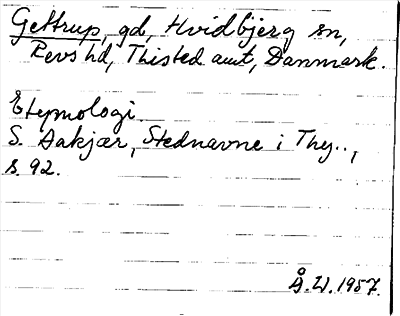 Gettrup, gd, Hvidbjerg sn,
Revs hd, Thisted amt, Danmark.
Etymologi.
S. Aakjær, Stednavne i Thy..,
s. 92.
Å.W. 1957.